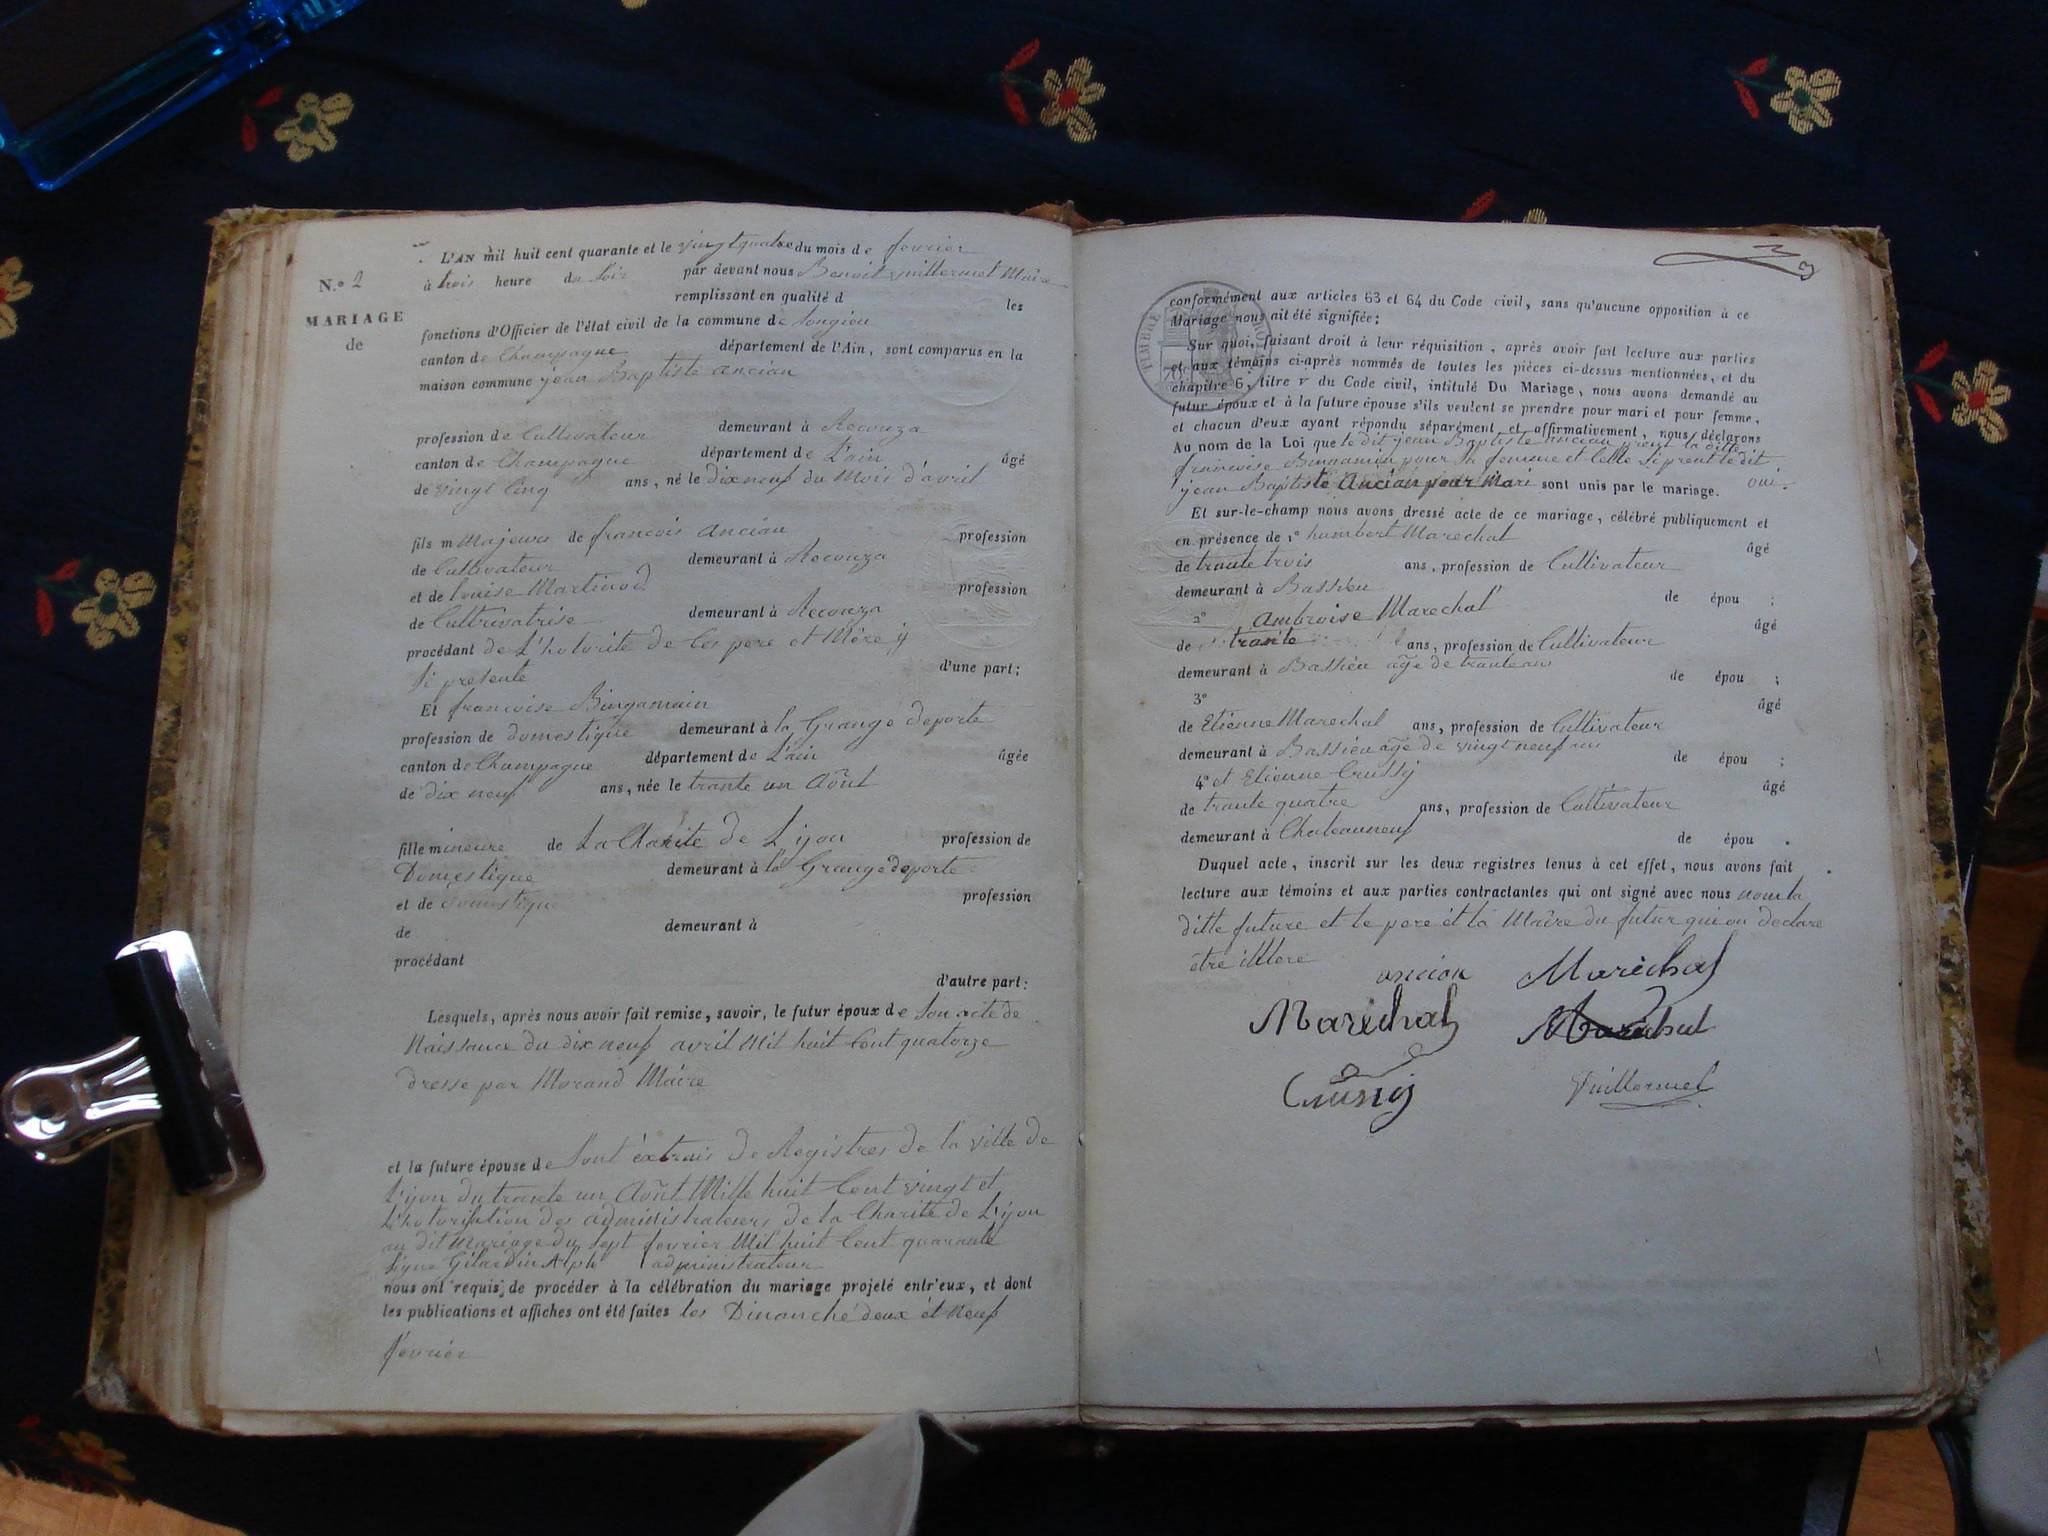 N.o 2
MARIAGE
de
L'AN mil huit cent quarante et le vingt quatre du mois de fevrier
à trois heure du soir par devant nous Benoit Vuillermet Maire
remplissant en qualité d les
fonctions d'Officier de l'état civil de la commune de Songieu
canton de Champagne département de l'Ain, sont comparus en la
maison commune jean Baptiste ancian
profession de Cultivateur demeurant à
canton de Champagne département de L'ain âgé
de vingt Cinq ans, né le dix neuf du Mois d'avril
fils m Majeur de francois Ancian profession
de Cultivateur demeurant à
et de louise Martinod profession
de Cultivatrise demeurant à
procédant de L'hotorité de Ces pere et Mére ÿ
si présente d'une part;
Et francoise Bingamain
profession de domestique demeurant à la Grange deporte
canton de Champagne département de L'ain âgée
de dix neuf ans, née le trante un Août
fille mineure de La Charité de Lijon profession de
Domestique demeurant à la Grange deporte
et de Domestique profession
de demeurant à
procédant
d'autre part:
Lesquels, après nous avoir fait remise, savoir, le futur époux de Son acte de
Naissance du dix neuf avril Mil huit Cent quatorze
dresse par Morand Maire
et la future épouse de Sont éxtrais de Registres de la ville de
Lijon du trante un Août Mille huit Cent vingt et
L'hotorisation des administrateurs de la Charité de Lijon
au dit Mariage du sept fevrier Mil huit Cent quarante
Signe Gilardin Alph administrateur
nous ont requis de procéder à la célébration du mariage projeté entr'eux, et dont
les publications et affiches ont été faites les Dimanche deux et Neuf
fevrier
3
conformément aux articles 63 et 64 du Code civil, sans qu'aucune opposition à ce
Mariage nous ait été signifiée;
Sur quoi, faisant droit à leur réquisition, après avoir fait lecture aux parties
et aux témoins ci-après nommés de toutes les pièces ci-dessus mentionnées, et du
chapitre 6, titre v du Code civil, intitulé Du Mariage, nous avons demandé au
futur époux et à la future épouse s'ils veulent se prendre pour mari et pour femme,
et chacun d'eux ayant répondu séparément et affirmativement, nous déclarons
Au nom de la Loi que le dit jean Baptiste ancian prent la ditte
francoise Bingamin pour sa femme et Celle si prent le dit
jean Baptiste Ancian pour Mari sont unis par le mariage. oui.
Et sur-le-champ nous avons dressé acte de ce mariage, célébré publiquement et
en présence de 1o humbert Marechal âgé
de trante trois ans, profession de Cultivateur
demeurant à Bassieu de épou ;
2o Ambroise Marechal âgé
de trante ans, profession de Cultivateur
demeurant à Bassieu âge de trante ans de épou ;
3o âgé
de Etienne Marechal ans, profession de Cultivateur
demeurant à Bassieu âge de vingt neuf ans de épou ;
4o et Etienne Crussÿ âgé
de trante quatre ans, profession de Cultivateur
demeurant à Chateauneuf de épou .
Duquel acte, inscrit sur les deux registres tenus à cet effet, nous avons fait
lecture aux témoins et aux parties contractantes qui ont signé avec nous non la
ditte future et le pere et la Maire du futur qui on declare
etre illlere
ancian Maréchal
Maréchal Marechal
Crussÿ Vuillermet
TIMBRE